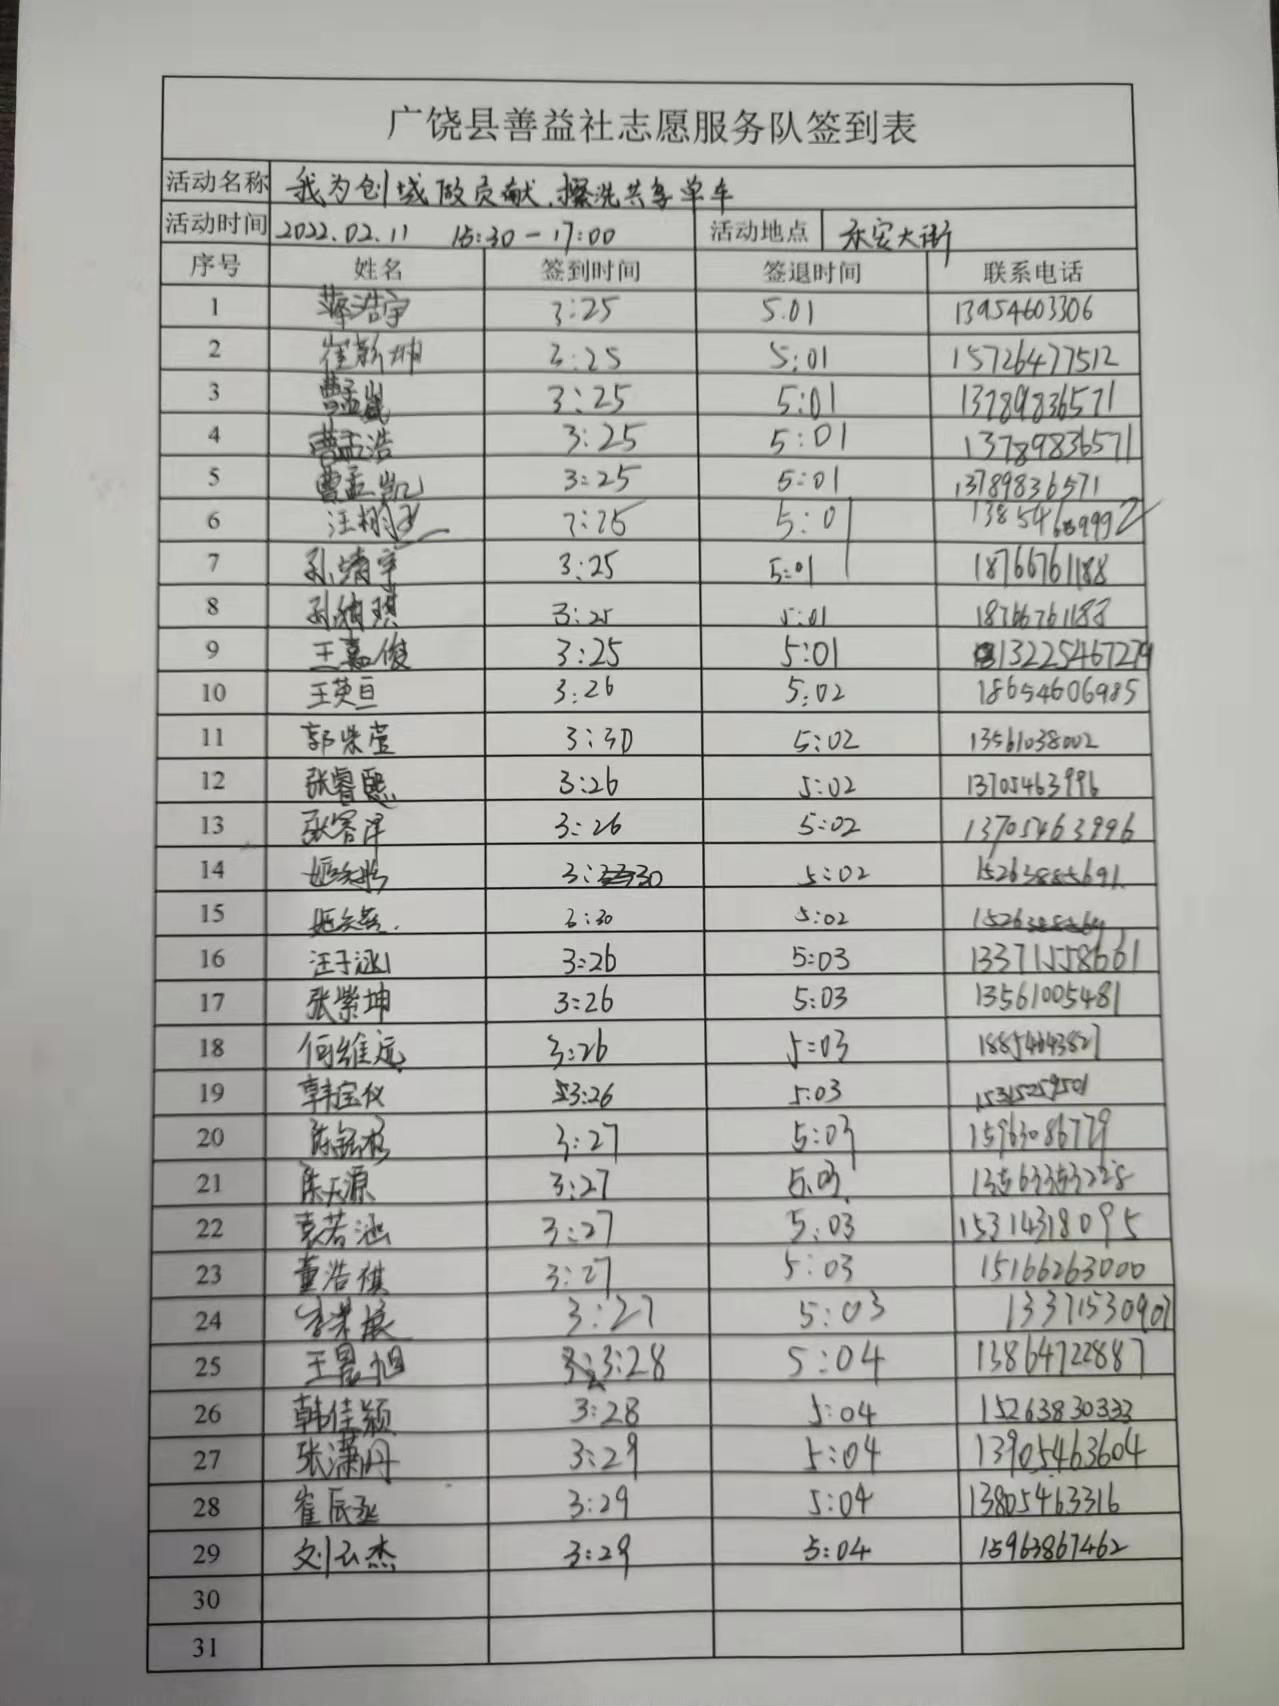 广饶县善益社志愿服务队签到表
活动名称 我为创城做贡献,擦洗共享单车
活动时间 2022.02.11 15:30-17:00 活动地点 乐安大街
序号 姓名 签到时间 签退时间 联系电话
1 浩宇 3:25 5.01 13954603306
2 崔新坤 3:25 5:01 15726477512
3 曹孟 3:25 5:01 13789836571
4 曹孟浩 3:25 5:01 13789836571
5 曹孟凯 3:25 5:01 13789836571
6 汪栩 5:01
7 孙靖宇 3:25 5:01 18766761188
8 孙 琪 3:25 5:01 18766761188
9 王嘉俊 3:25 5:01 13225467279
10 王英亘 3:26 5:02 18654606985
11 郭紫萱 3:30 5:02 13561038002
12 张睿熙 3:26 5:02 13705463996
13 张睿泽 3:26 5:02 13705463996
14 3:30 5:02 15263885691
15 3:30 5:02
16 汪子涵 3:26 5:03 13371558661
17 张紫坤 3:26 5:03 13561005481
18 何维 3:26 5:03
19 韩宝仪 3:26 5:03 15315259501
20 陈 3:27 5:03 15963086779
21 陈天源 3:27 5.03 13563353228
22 袁若涵 3:27 5:03 15314318095
23 董浩祺 3:27 5:03 15166263000
24 李 3:27 5:03 13371530907
25 王晨旭 3:28 5:04 13864722887
26 韩佳颖 3:28 5:04 15263830333
27 张潇丹 3:29 5:04 13905463604
28 崔辰丞 3:29 5:04 13805463316
29 刘云杰 3:29 5:04 15963867462
30
31